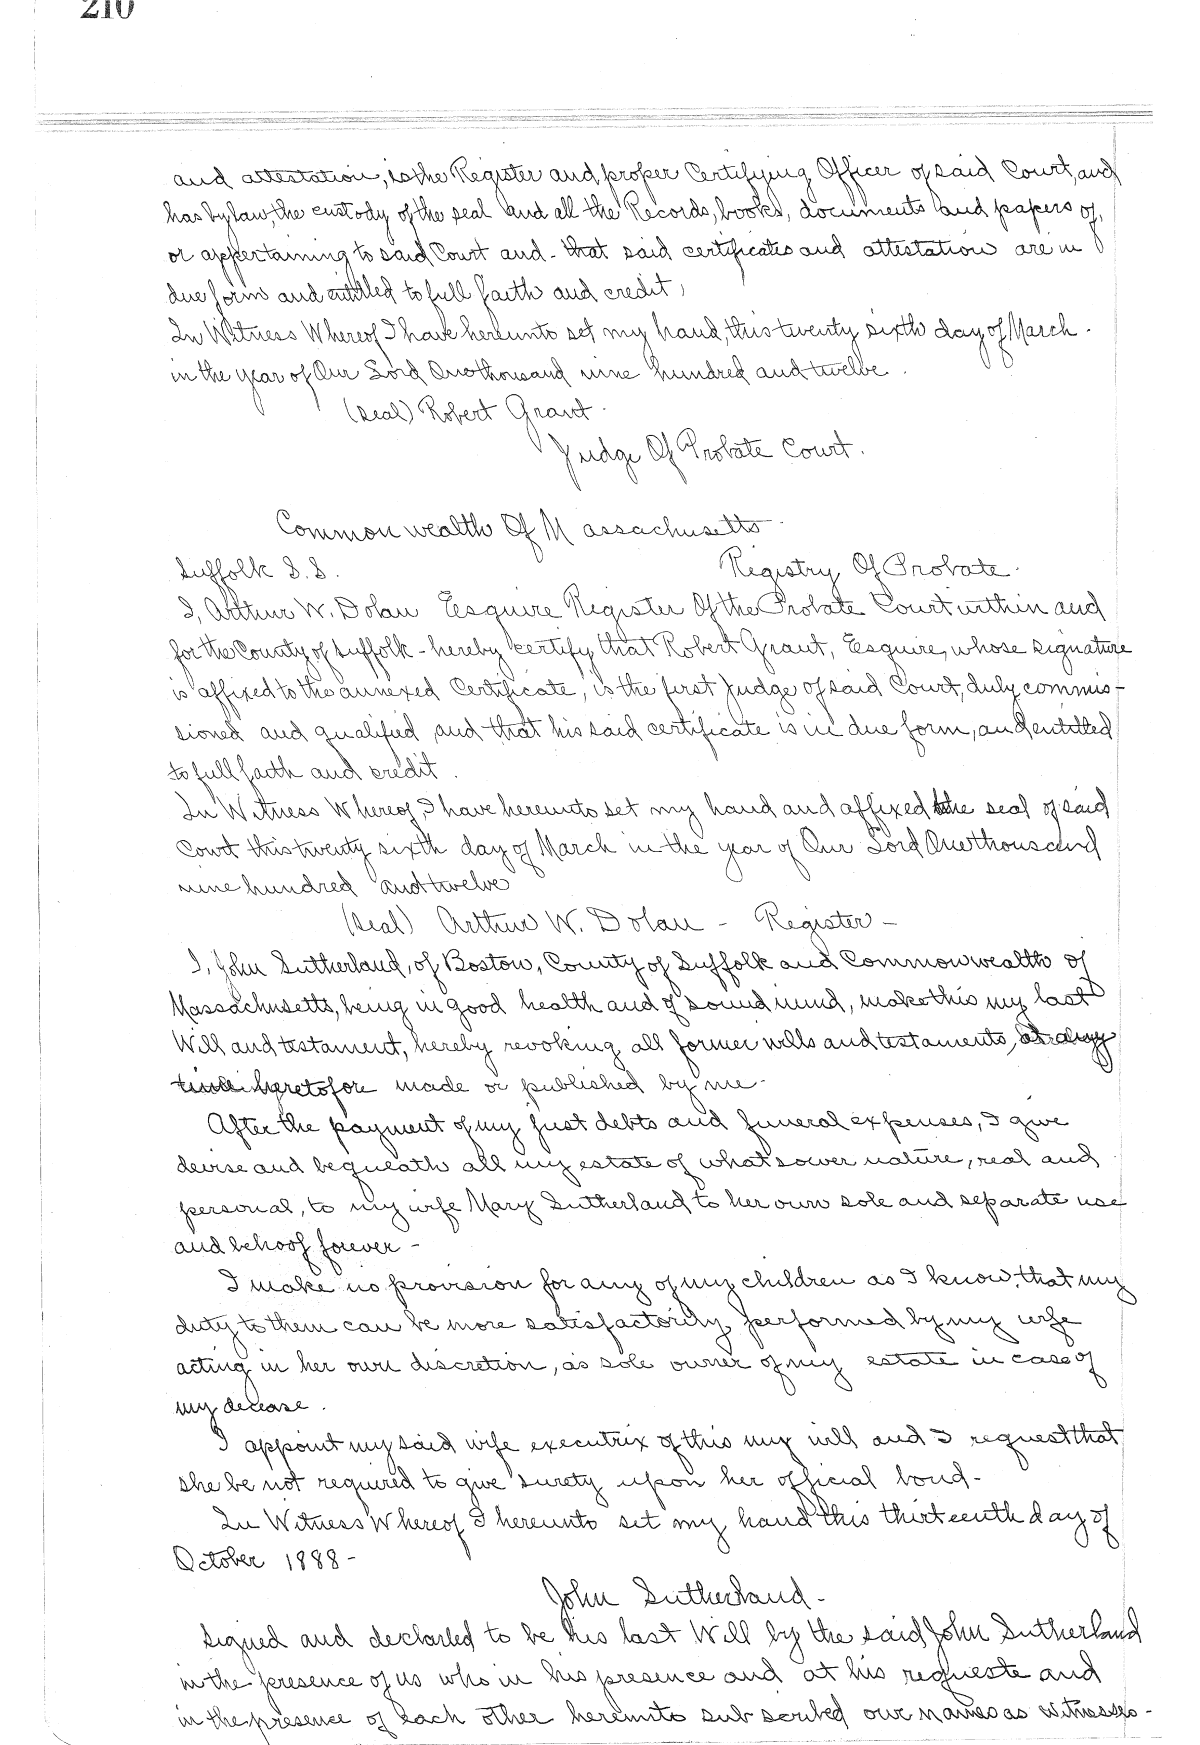 210
and attestation, is the Register and proper Certifying Officer of said Court, and
has by law, the custody of the seal and all the Records, books, documents and papers of,
or appertaining to said Court and - that said certificates and attestation are in
due form and entitled to full faith and credit,
In Witness Whereof I have hereunto set my hand, this twenty sixth day of March.
in the year of Our Lord One thousand nine hundred and twelve.
(seal) Robert Grant.
Judge Of Probate Court.
Common wealth Of Massachusetts.
Suffolk S.S. Registry Of Probate.
I, Arthur W. Dolan Esquire Register Of the Probate Court within and
for the County of Suffolk - hereby certify that Robert Grant, Esquire, whose signature
is affixed to the annexed Certificate, is the first Judge of said Court, duly commis-
sioned and qualified, and that his said certificate is in due form, and entitled
to full faith and credit.
In Witness Whereof, I have hereunto set my hand and affixed the seal of said
Court this twenty sixth day of March in the year of Our Lord One thousand
nine hundred and twelve
(seal) Arthur W. Dolan - Register -
I, John Sutherland, of Boston, County of Suffolk and Commonwealth of
Massachusetts, being in good health and of sound mind, make this my last
Will and testament, hereby revoking all former wills and testaments, at any
time heretofore made or published by me -
After the payment of my just debts and funeral expenses, I give
devise and bequeath all my estate of whatsower nature, real and
personal, to my wife Mary Sutherland to her own sole and separate use
and behoof forever -
I make no provision for any of my children as I know, that my
duty to them can be more satisfactorily performed by my wife
acting in her own discretion, as sole owner of my estate in case of
my decease.
I appoint my said wife executrix of this my will and I request that
she be not required to give surety upon her official bond -
In Witness Whereof I hereunto set my hand this thirteenth day of
October 1888 -
John Sutherland -
Signed and declarled to be his last Will by the said John Sutherland
in the presence of us who in his presence and at his requeste and
in the presence of each other hereunto subscribed our names as witnesses -